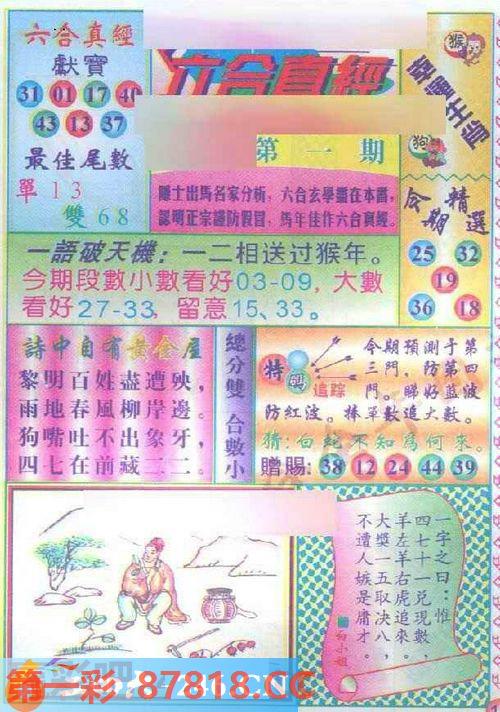 六合真經
獻寶
31 01 17 40
43 13 37
最佳尾數
單 1 3
雙 6 8
六合真經
第一期
隱士出馬名家分析，六合玄學盡在本書，
認明正宗謹防假冒，馬年佳作六合真經。
幸運生肖
猴
狗
今期精選
25 32
19
36 18
一語破天機：一二相送过猴年。
今期段數小數看好03-09，大數
看好27-33，留意15、33。
詩中自有黃金屋
黎明百姓盡遭殃，
雨地春風柳岸邊。
狗嘴吐不出象牙，
四七在前藏二二。
總分雙 合數小
特碼
追踪
今期預測于第
三門，防第四
門。睇好藍波
防紅波。捧單數追大數。
猜：白蛇不知為何來。
贈賜：38 12 24 44 39
一字之曰：惟
四七十一兑現數，
羊左羊右虎追來。
大獎一五取决八，
不遭人嫉是庸才。
白小姐
第一彩 87818.CC